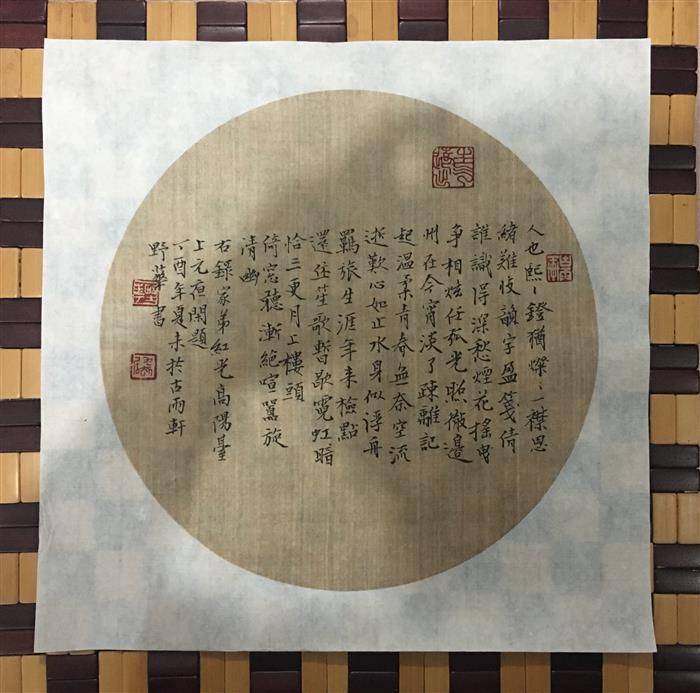 人也熙〻鐙猶燦〻一襟思
緒難收韻字盈箋倩
誰識得深愁煙花搖曳
爭相炫任孤光照徹邊
州在今宵淡了疎離記
起溫柔青春無奈空流
逝歎心如止水身似浮舟
羈旅生涯年來檢點
還任笙歌暫歇霓虹暗
恰三更月上樓頭
倚窓聽漸絕喧囂旋
清幽
右錄家弟紅光高陽臺
上元夜閑題
丁酉年夏末於古雨軒
野華書